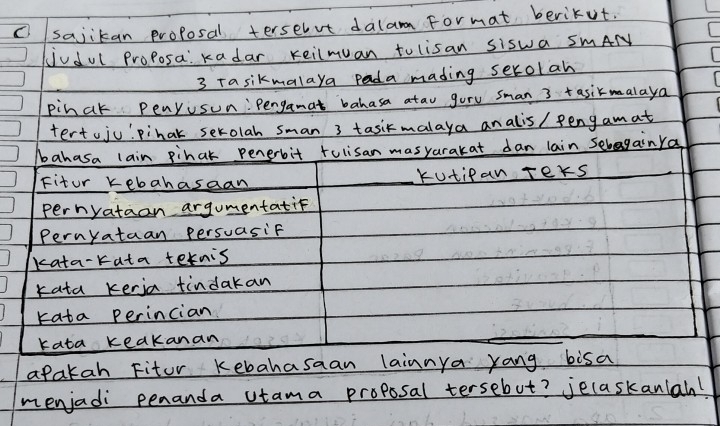 c sajikan proposal tersebut dalam format berikut.
judul proposa: kadar keilmuan tulisan siswa SMAN
3 Tasikmalaya pada mading sekolah
pihak penyusun: pengamat bahasa atau guru sman 3 tasikmalaya
tertuju: pihak sekolah sman 3 tasikmalaya analis/pengamat
bahasa lain pihak penerbit tulisan masyarakat dan lain sebagainya
Fitur kebahasaan kutipan Teks
pernyataan argumentatif
pernyataan persuasif
kata-kata teknis
kata kerja tindakan
kata perincian
kata keakanan
apakah fitur kebahasaan lainnya yang bisa
menjadi penanda utama proposal tersebut? jelaskanlah!